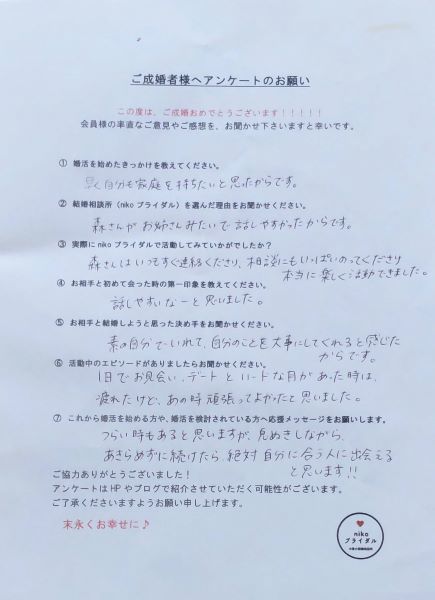 ご成婚者様へアンケートのお願い
この度は、ご成婚おめでとうございます！！！！！
会員様の率直なご意見やご感想を、お聞かせ下さいますと幸いです。
① 婚活を始めたきっかけを教えてください。
早く自分も家庭を持ちたいと思ったからです。
② 結婚相談所（niko ブライダル）を選んだ理由をお聞かせください。
森さんがお姉さんみたいで話しやすかったからです。
③ 実際に niko ブライダルで活動してみていかがでしたか？
森さんはいつもすぐ連絡くださり、相談にもいっぱいのってくださり
本当に楽しく活動できました。
④ お相手と初めて会った時の第一印象を教えてください。
話しやすいなーと思いました。
⑤ お相手と結婚しようと思った決め手をお聞かせください。
素の自分でいれて、自分のことを大事にしてくれると感じた
からです。
⑥ 活動中のエピソードがありましたらお聞かせください。
1日でお見合い、デートとハードな月があった時は、
疲れたけど、あの時頑張ってよかったと思いました。
⑦ これから婚活を始める方や、婚活を検討されている方へ応援メッセージをお願いします。
つらい時もあると思いますが、息ぬきしながら、
あきらめずに続けたら、絶対自分に合う人に出会える
と思います!!
ご協力ありがとうございました！
アンケートは HP やブログで紹介させていただく可能性がございます。
ご了承くださいますようお願い申し上げます。
末永くお幸せに♪
niko
ブライダル